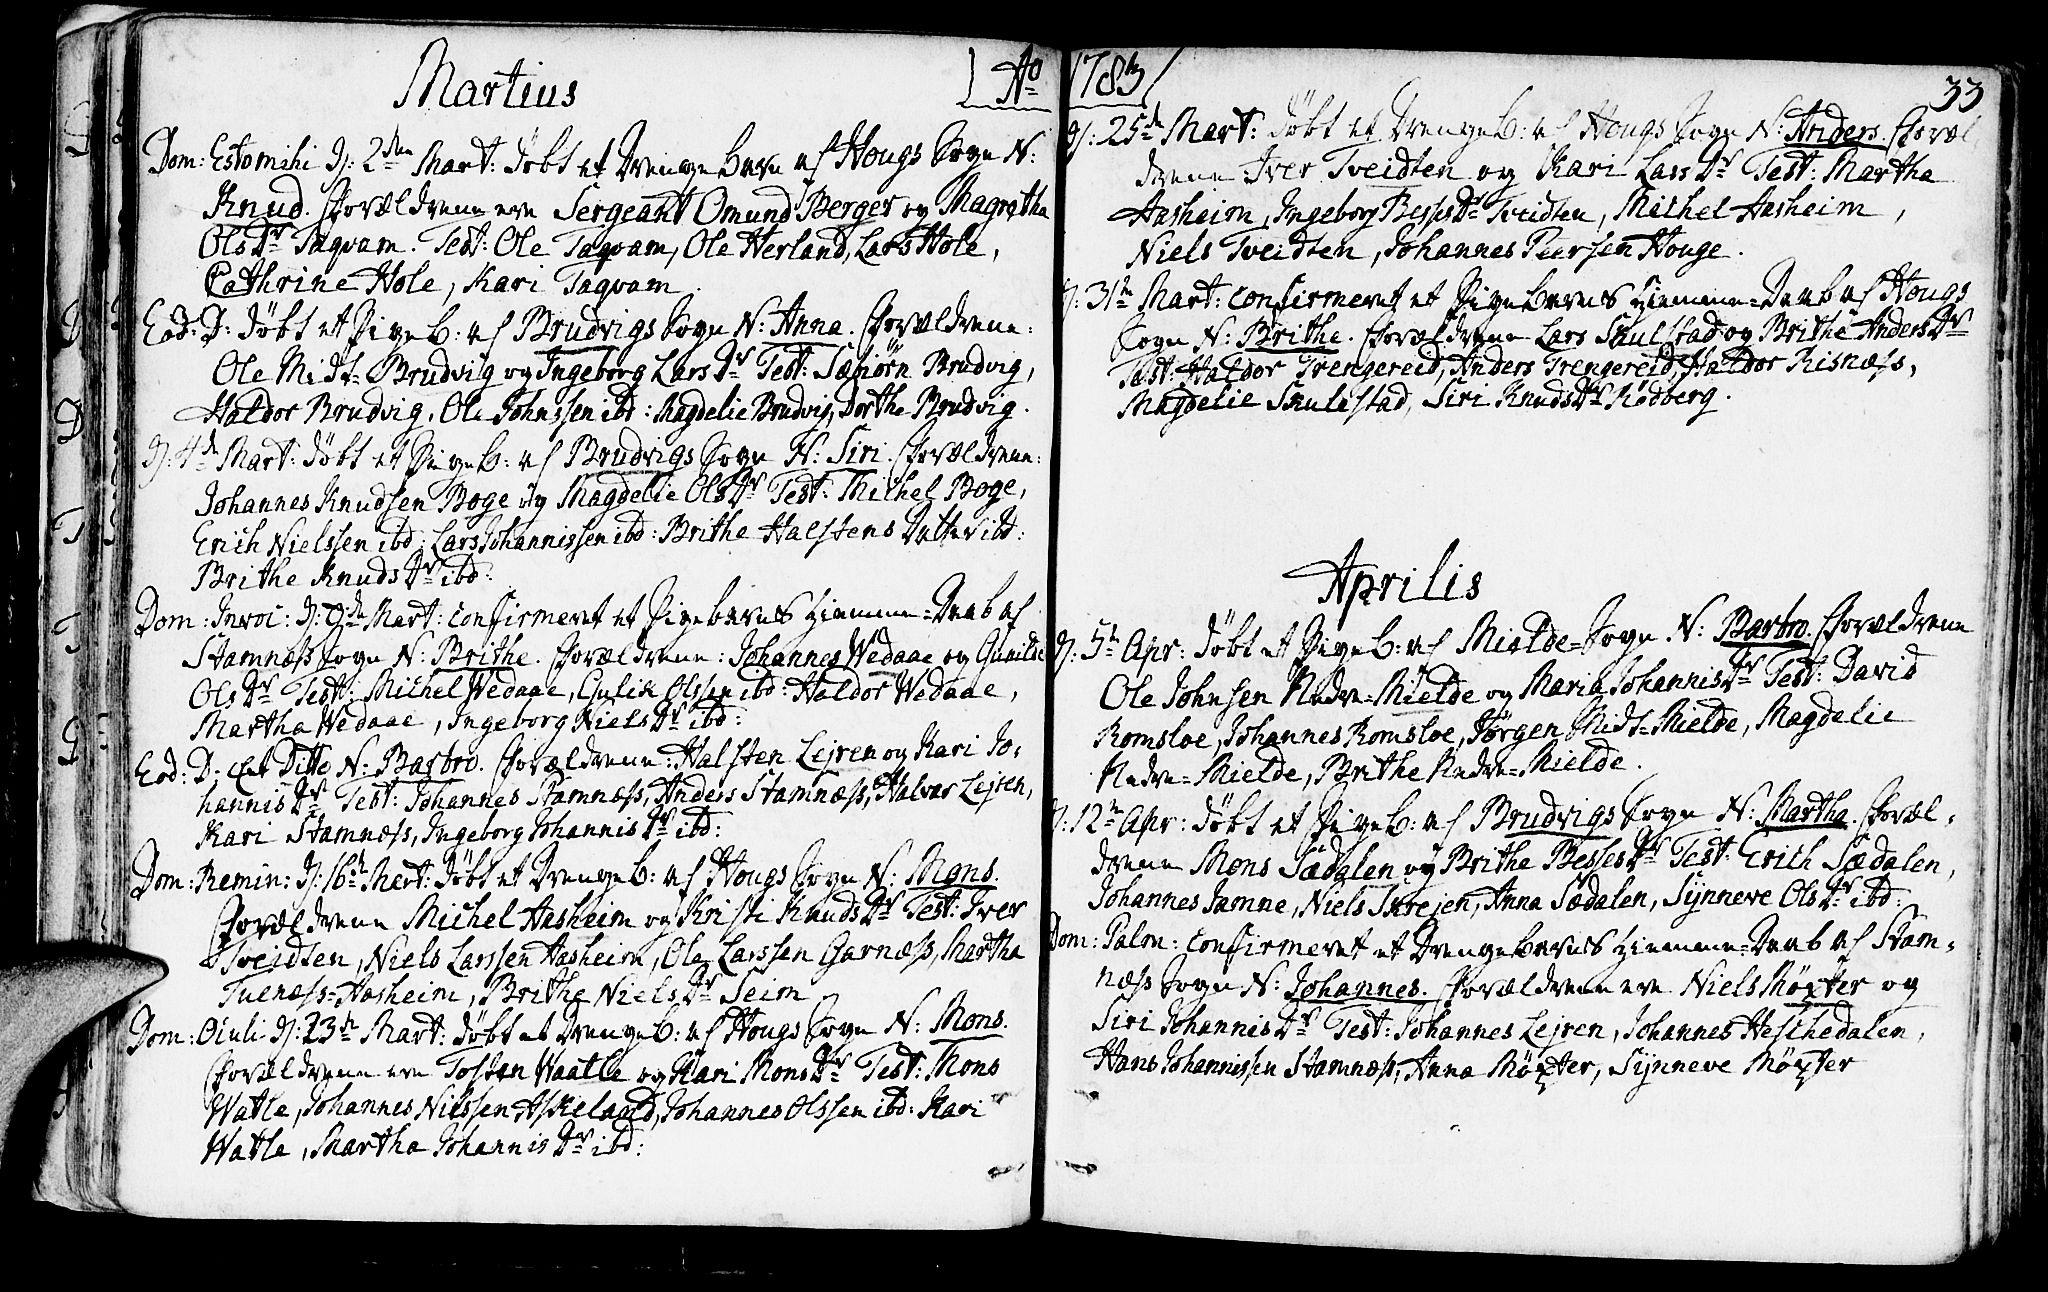 Martius
Ao 1783
Dom: Estomihi D: 2den Mart: döbt et Drengebarn af Hougs Sogn N:
Knud. Forældrene ere Sergeant Omund Berger og Magretha
Ols Dr Taqvam. Test: Ole Taqvam, Ole Herland, Lars Hole,
Cathrine Hole, Kari Taqvam.
Eod: D: döbt et Pigeb: af Brudvigs Sogn N: Anna. Forældrene:
Ole Midt-Brudvig og Ingeborg Lars Dr Test: Sæbiörn Brudvig,
Haldor Brudvig, Ole Johnssen ibd: Magdelie Brudvig, Dorthe Brudvig.
D: 4de Mart: döbt et Pigeb: af Brudvigs Sogn N: Siri. Forældrene:
Johannes Knudsen Boge og Magdelie Ols Dr Test: Michel Boge,
Erich Nielssen ibd: Lars Johannissen ibd: Brithe Halstens Datter ibd:
Brithe Knuds Dr ibd:
Dom: Invoc: D: 9de Mart: confirmeret et Pigebarns Hiemme-Daab af
Stamnæss Sogn N: Brithe. Forældrene: Johannes Wedaae og Gunilde
Ols Dr Test: Michel Wedaae, Gulik Olssen ibd: Haldor Wedaae,
Martha Wedaae, Ingeborg Niels Dr ibd:
Eod: D: et Ditto N: Barbro. Forældrene: Halsten Lejren og Kari Jo-
hannis Dr Test: Johannes Stamnæss, Anders Stamnæss, Halvor Lejren,
Kari Stamnæss, Ingeborg Johannis Dr ibd:
Dom: Remin: D: 16de Mert: döbt et Drengeb: af Hougs Sogn N: Mons.
Forældrene Michel Aasheim og Kristi Knuds Dr Test: Iver
Tveidten, Niels Larssen Aasheim, Ole Larssen Garnæss, Martha
Tuenæss-Aasheim, Brithe Niels Dr Seim
Dom: Oculi D: 23de Mart: döbt et Drengeb: af Hougs Sogn N: Mons.
Forældrene ere Tosten Waatle og Kari Mons Dr Test: Mons
Watle, Johannes Nilssen Askeland, Johannes Olssen ibd: Kari
Watle, Martha Johannis Dr ibd:
33
D: 25de Mart: döbt et Drengeb: af Hougs Sogn N: Anders. Foræl-
drene Iver Tveidten og Kari Lars Dr Test: Martha
Aasheim, Ingeborg Besses Dr Tveidten, Michel Aasheim,
Niels Tveidten, Johannes Peersen Houge.
D: 31te Mart: confirmeret et Pigebarns Hiemme-Daab af Hougs
Sogn N: Brithe. Forældrene Lars Skulstad og Brithe Anders Dr
Test: Haldor Trengereid, Anders Trengereid, Haldor Risnæss,
Magdelie Skulestad, Siri Knuds Dr Rödberg.
Aprilis
D: 5te Apr: döbt et Pigeb: af Mielde-Sogn N: Barbro. Forældrene
Ole Johnsen Nedre-Mielde og Maria Johannis Dr Test: David
Romsloe, Johannes Romsloe, Jörgen Midt-Mielde, Magdelie
Nedre-Mielde, Brithe Nedre-Mielde.
D: 12te Apr: döbt et Pigeb: af Brudvigs Sogn N: Martha. Foræl-
drene Mons Sædalen og Brithe Besses Dr Test: Erich Sædalen,
Johannes Jamne, Niels Skrejen, Anna Sædalen, Synneve Ols Dr ibd:
Dom: Palm: confirmeret et Drengebarns Hiemme-Daab af Stam-
næss Sogn N: Johannes. Forældrene ere Niels Möxter og
Siri Johannis Dr Test: Johannes Lejren, Johannes Heschedalen,
Hans Johannissen Stamnæss, Anna Möxter, Synneve Möxter